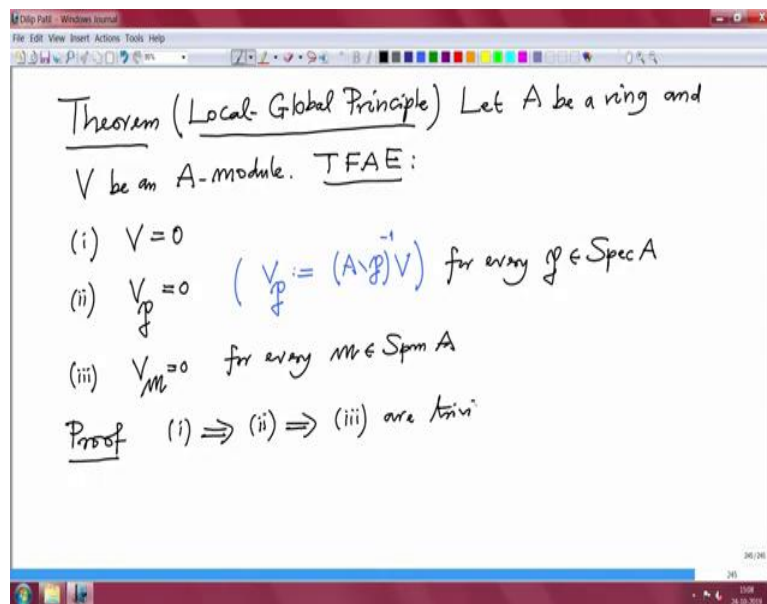 Dilip Patil - Windows Journal
File Edit View Insert Actions Tools Help
Theorem (Local-Global Principle) Let A be a ring and
V be an A-module. TFAE:
(i) V = 0
(ii) V_𝔭 = 0 ( V_𝔭 := (A∖𝔭)⁻¹V ) for every 𝔭 ∈ Spec A
(iii) V_𝔪 = 0 for every 𝔪 ∈ Spm A
Proof (i) ⇒ (ii) ⇒ (iii) are trivi
245
15:08
24-10-2019